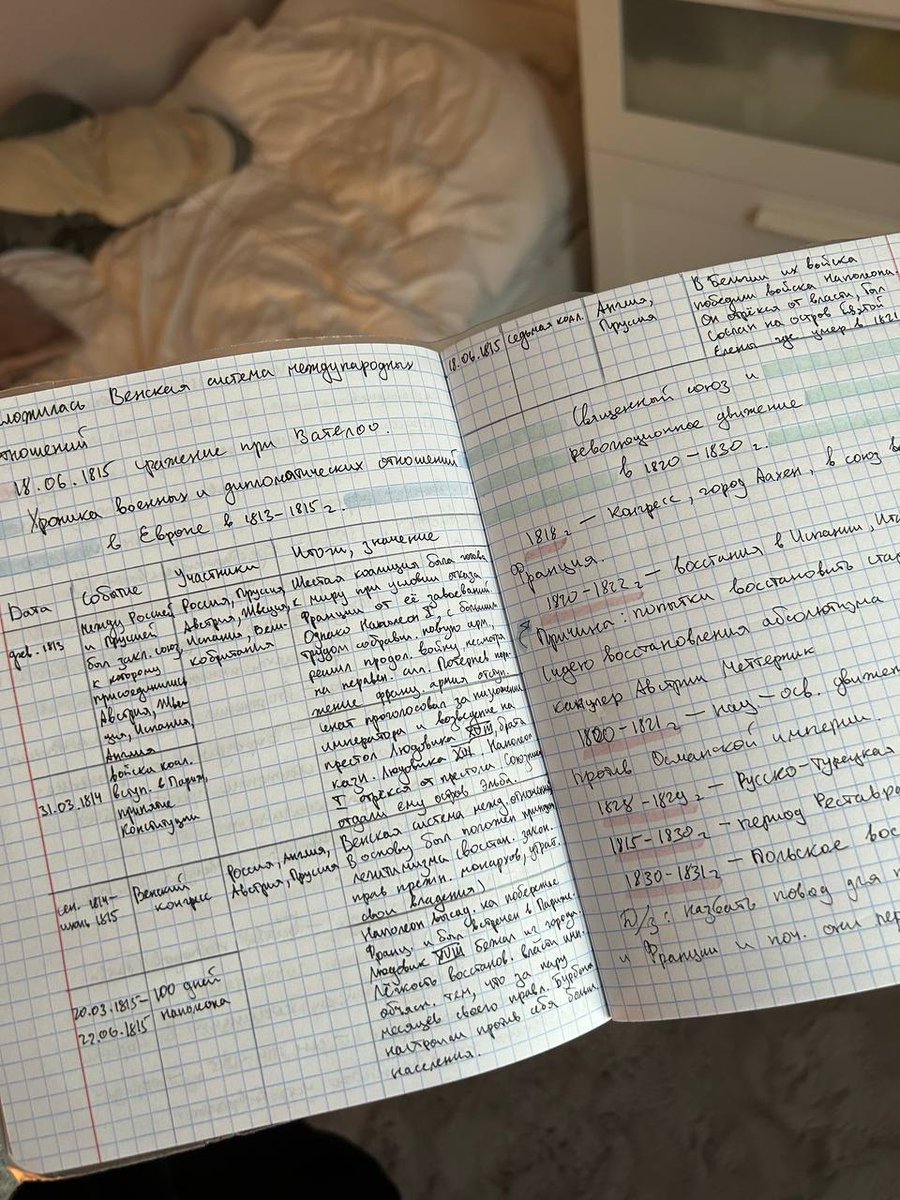 сложилась Венская система международных
отношений
18.06.1815 сражение при Вателоо.
Хроника военных и дипломатических отношений
в Европе в 1813-1815 г.
Дата
Событие
Участники
Итоги, значение
фев. 1813
между Россией
и Пруссией
был закл. союз,
к которому
присоединились
Австрия, Шве-
ция, Испания,
Англия
Россия, Пруссия
Австрия, Швеция,
Испания, Вели-
кобритания
Шестая коалиция была готова
к миру при условии отказа
Франции от её завоеваний
Однако Наполеон I с большим
трудом собрав нов. арм.
решил продол. войну несмотря
на неравен. сил. Потерпев пор-
жение франц. армия отступ.
31.03.1814
войска коал.
вступ. в Париж,
принятие
Конституции
сенат проголосовал за низложение
императора и возведение на
престол Людовика XVIII, брата
казн. Людовика XVI. Наполеон
I отрёкся от престола Союзники
отдали ему остров Эльба.
сен. 1814-
июнь 1815
Венский
конгресс
Россия, Англия,
Австрия, Пруссия
Венская система межд. отношений
В основу был положен принцип
легитимизма (восстан. закон.
прав прежн. монархов, утрат.
свои владения)
20.03.1815-
22.06.1815
100 дней
Наполеона
Наполеон высад. на побережье
Франц. и был встречен в Париже.
Людовик XVIII бежал из города.
Лёгкость восстанов. власти имп.
объясн. тем, что за пару
месяцев своего правл. Бурбоны
настроили против себя больш.
населения.
18.06.1815
седьмая коал.
Англия,
Пруссия
В Бельгии их войска
победили войска Наполеона.
Он отрёкся от власти, был
сослан на остров Святой
Елены где умер в 1821
Священный союз и
революционное движение
в 1820-1830 г.
1818 г - конгресс, город Аахен, в союз
Франция.
1820-1822 г - восстания в Испании,
Причина: попытки восстановить
Идею восстановления абсолютизма
канцлер Австрии Меттерних
1820-1821 г - нац-осв.
против Османской империи.
1828-1829 г - Русско-Турецкая
1815-1830 г - период
1830-1831 г - Польское
Д/З: назвать повод для
и Франции и поч. они